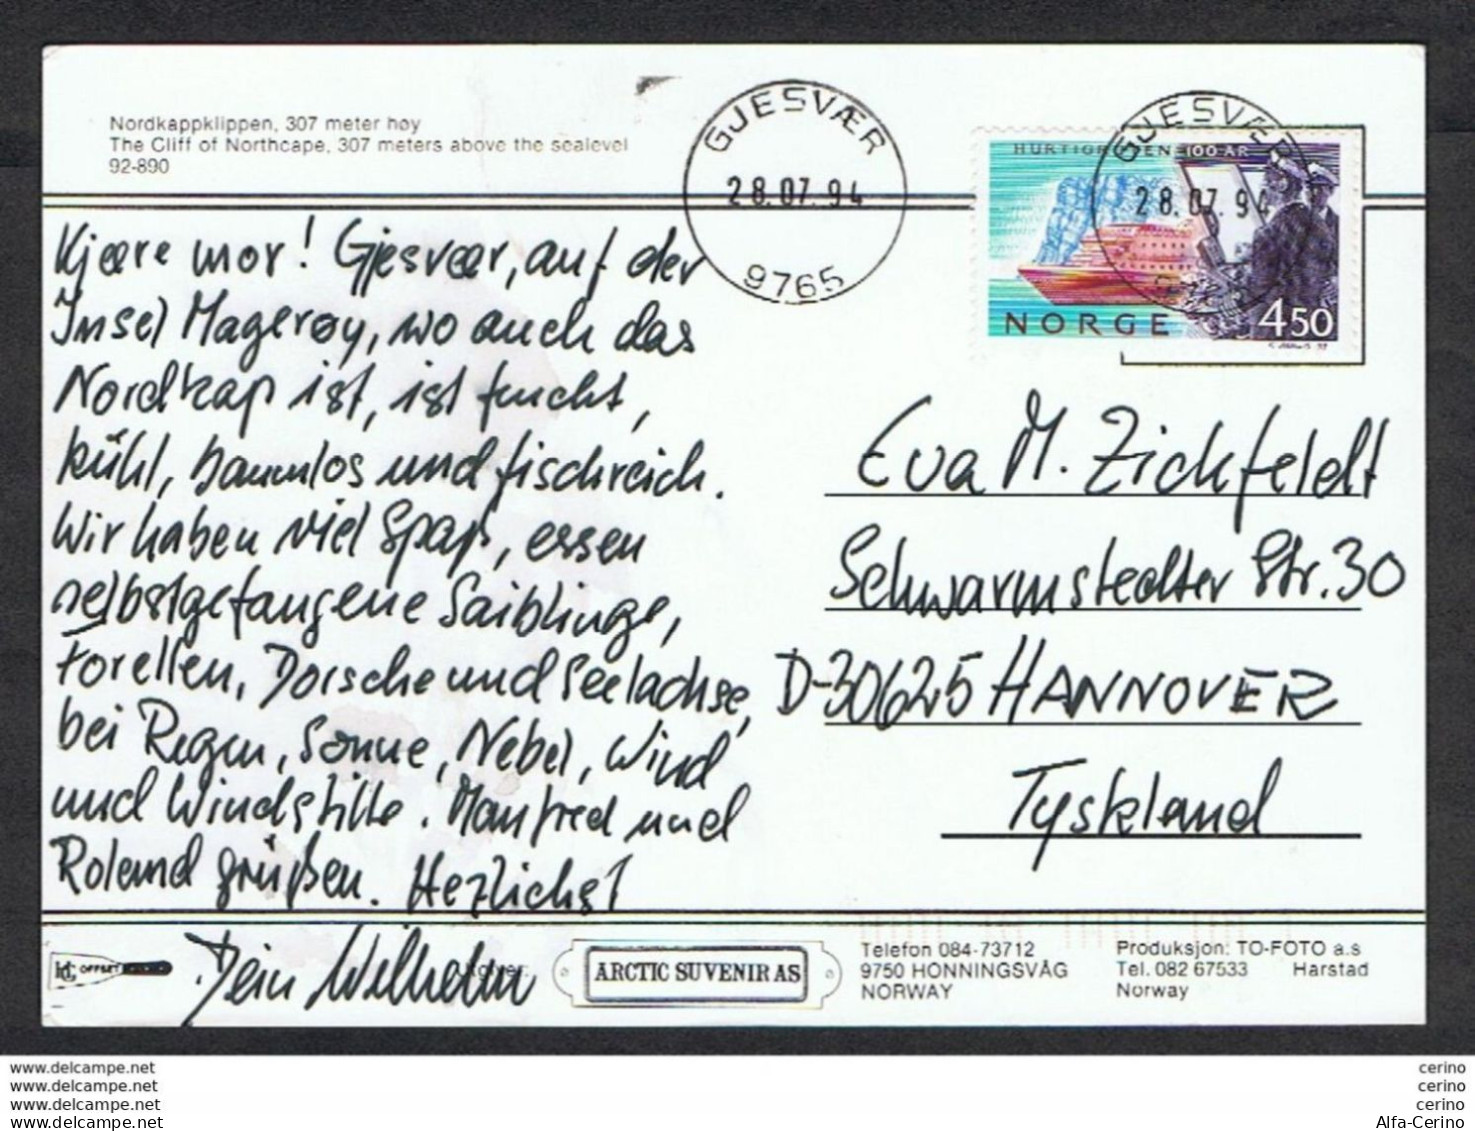 Nordkappklippen, 307 meter høy
The Cliff of Northcape, 307 meters above the sealevel
92-890
GJESVÆR
28.07.94
9765
HURTIGRUTEN 100 ÅR
GJESVÆR
28.07.94
NORGE
450
Kjære mor! Gjesvær, auf der
Insel Magerøy, wo auch das
Nordkap ist, ist feucht,
kühl, baumlos und fischreich.
Wir haben viel Spaß, essen
selbstgefangene Saiblinge,
Forellen, Dorsche und Seelachse,
bei Regen, Sonne, Nebel, Wind
und Windstille. Manfred und
Roland grüßen. Hezlichst
Dein Wilhelm
Eva M. Zickfeldt
Schwarmstedter Str. 30
D-30625 HANNOVER
Tyskland
OFFSET
Utgiver:
ARCTIC SUVENIR AS
Telefon 084-73712
9750 HONNINGSVÅG
NORWAY
Produksjon: TO-FOTO a.s
Tel. 082 67533 Harstad
Norway
www.delcampe.net
www.delcampe.net
www.delcampe.net
www.delcampe.net
cerino
cerino
cerino
Alfa-Cerino